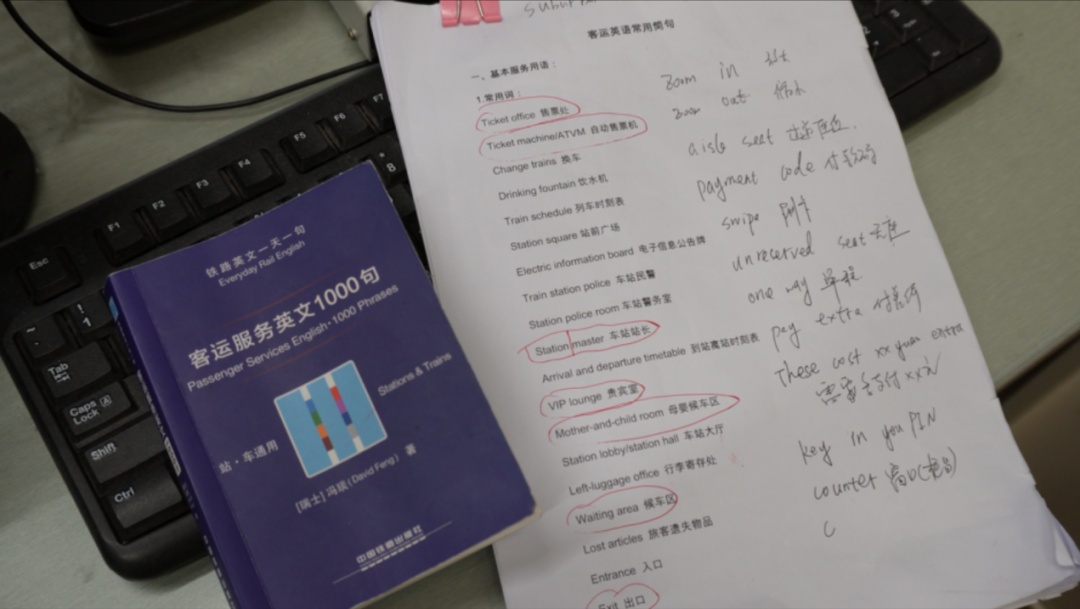 Esc
F1
F2
F3
F4
F5
F6
F7
Tab
Caps Lock
Shift
Ctrl
铁路英文一天一句
Everyday Rail English
客运服务英文1000句
Passenger Services English·1000 Phrases
Stations & Trains
站·车通用
[瑞士]冯琰(David Feng) 著
中国铁道出版社
客运英语常用简句
一、基本服务用语：
1.常用词：
Ticket office 售票处
Ticket machine/ATVM 自动售票机
Change trains 换车
Drinking fountain 饮水机
Train schedule 列车时刻表
Station square 站前广场
Electric information board 电子信息公告牌
Train station police 车站民警
Station police room 车站警务室
Station master 车站站长
Arrival and departure timetable 到站离站时刻表
VIP lounge 贵宾室
Mother-and-child room 母婴候车区
Station lobby/station hall 车站大厅
Left-luggage office 行李寄存处
Waiting area 候车区
Lost articles 旅客遗失物品
Entrance 入口
Exit 出口
Zoom in 放大
zoom out 缩小
aisle seat 过道座位
payment code 付款码
swipe 刷卡
unreserved seat 无座
one way 单程
pay extra
These cost xx yuan extra
需要支付xx元
key in you PIN
counter 窗口